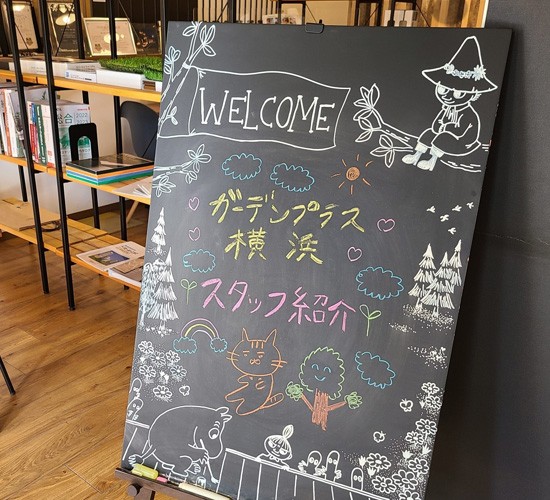 WELCOME
ガーデンプラス
横浜
スタッフ紹介